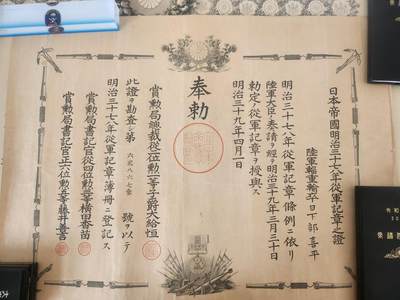 日本帝國明治三十七八年從軍記章之證
陸軍輜重輸卒日下部喜平
明治三十七八年從軍記章條例ニ依リ
陸軍大臣ノ奏請ヲ經テ明治三十九年三月三十日
勅定ノ從軍記章ヲ授與ス
明治三十九年四月一日
奉勅
賞勲局總裁從二位勲一等子爵大給恒
此證ヲ勘査シ第 號ヲ以テ
明治三十七八年從軍記章簿冊ニ登記ス
賞勲局書記官從四位勲三等横田香苗
賞勲局書記官正六位勲三等藤井善言
令和